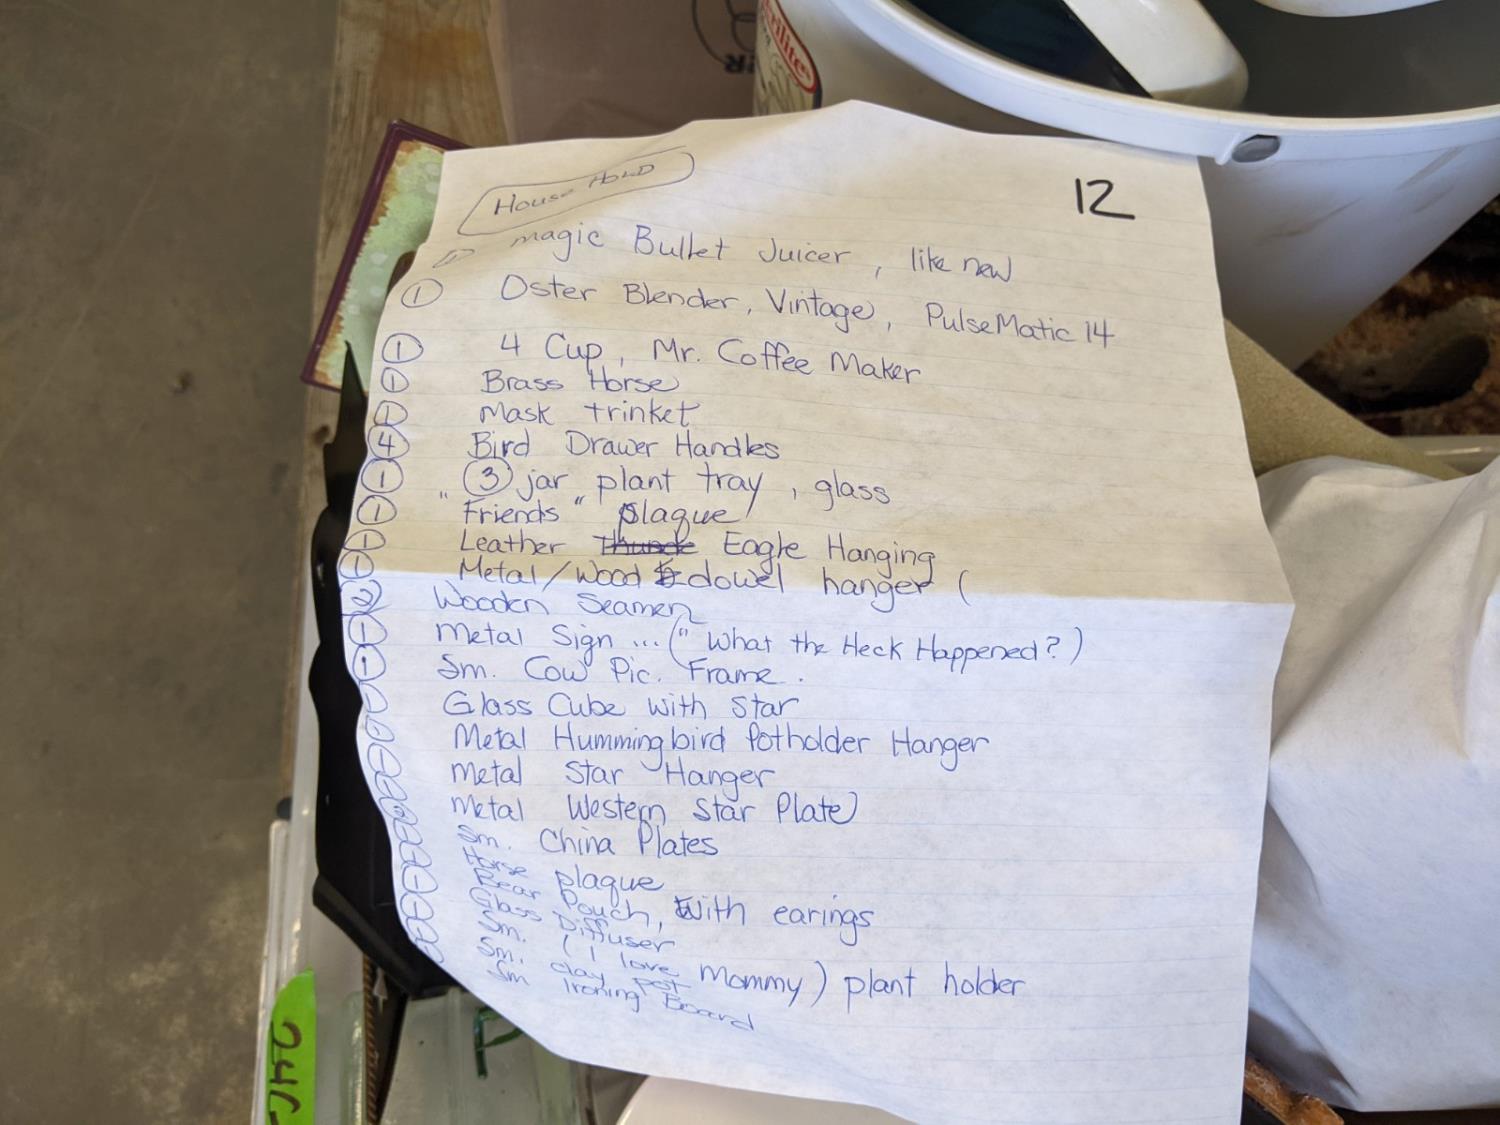 HOUSE HOLD
12
① magic Bullet Juicer, like new
① Oster Blender, Vintage, PulseMatic 14
① 4 Cup, Mr. Coffee Maker
① Brass Horse
① Mask trinket
④ Bird Drawer Handles
① ③ jar plant tray, glass
① "Friends" plaque
① Leather Eagle Hanging
① Metal/Wood dowel hanger (
② Wooden Seamen
① Metal Sign ... ("What the Heck Happened?)
① Sm. Cow Pic. Frame.
Glass Cube with Star
Metal Hummingbird Potholder Hanger
Metal Star Hanger
Metal Western Star Plate
Sm. China Plates
Horse plaque
Bear Pouch, with earings
Glass Diffuser
Sm. (I love Mommy) plant holder
Sm. clay pot
Sm Ironing Board